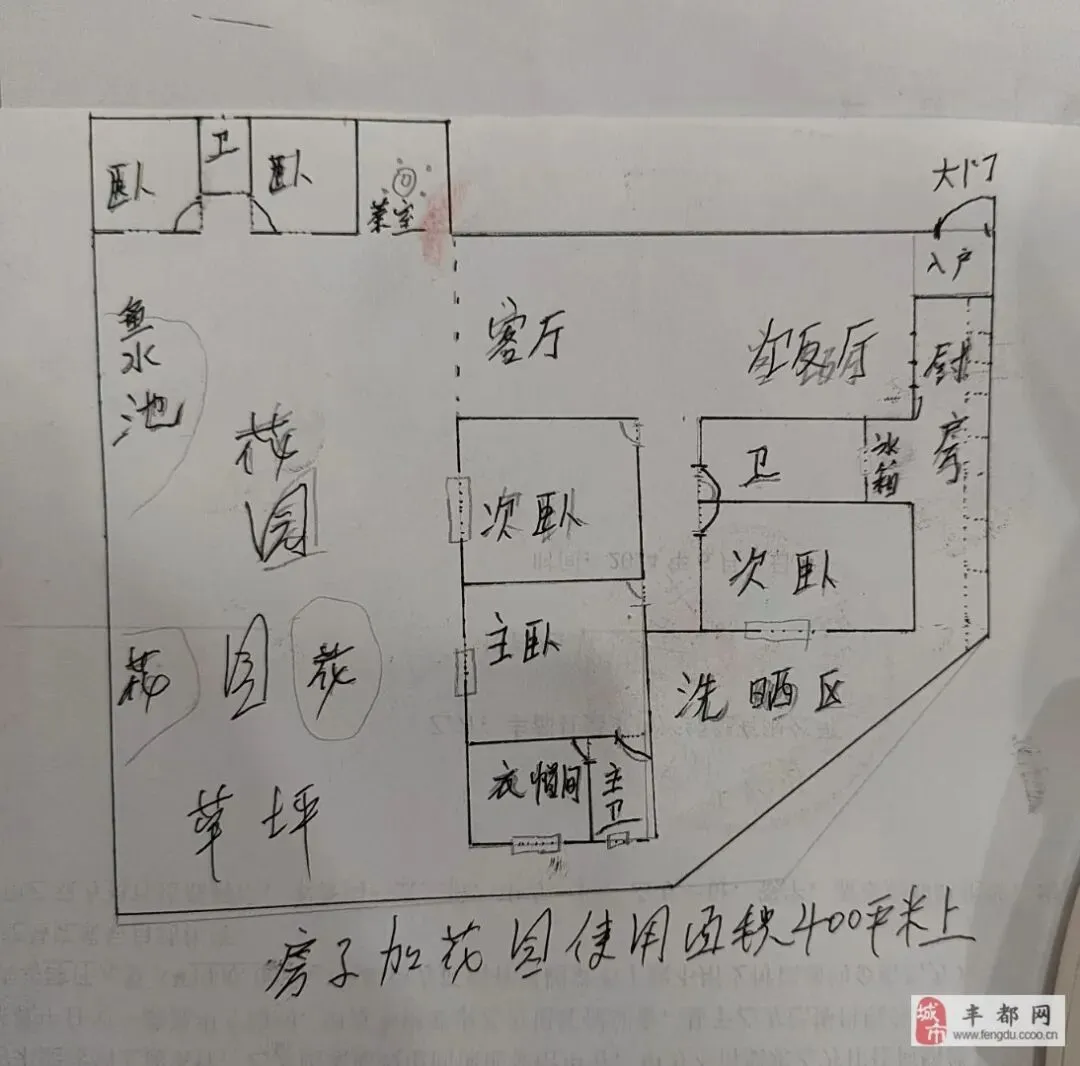 卫
卧
卧
茶室
大门
入户
鱼水池
客厅
厨房
花园
卫
冰箱
次卧
次卧
主卧
花
园
花
洗晒区
衣帽间
主卫
草坪
房子加花园使用面积400平米上
城市
丰都网
www.fengdu.ccoo.cn